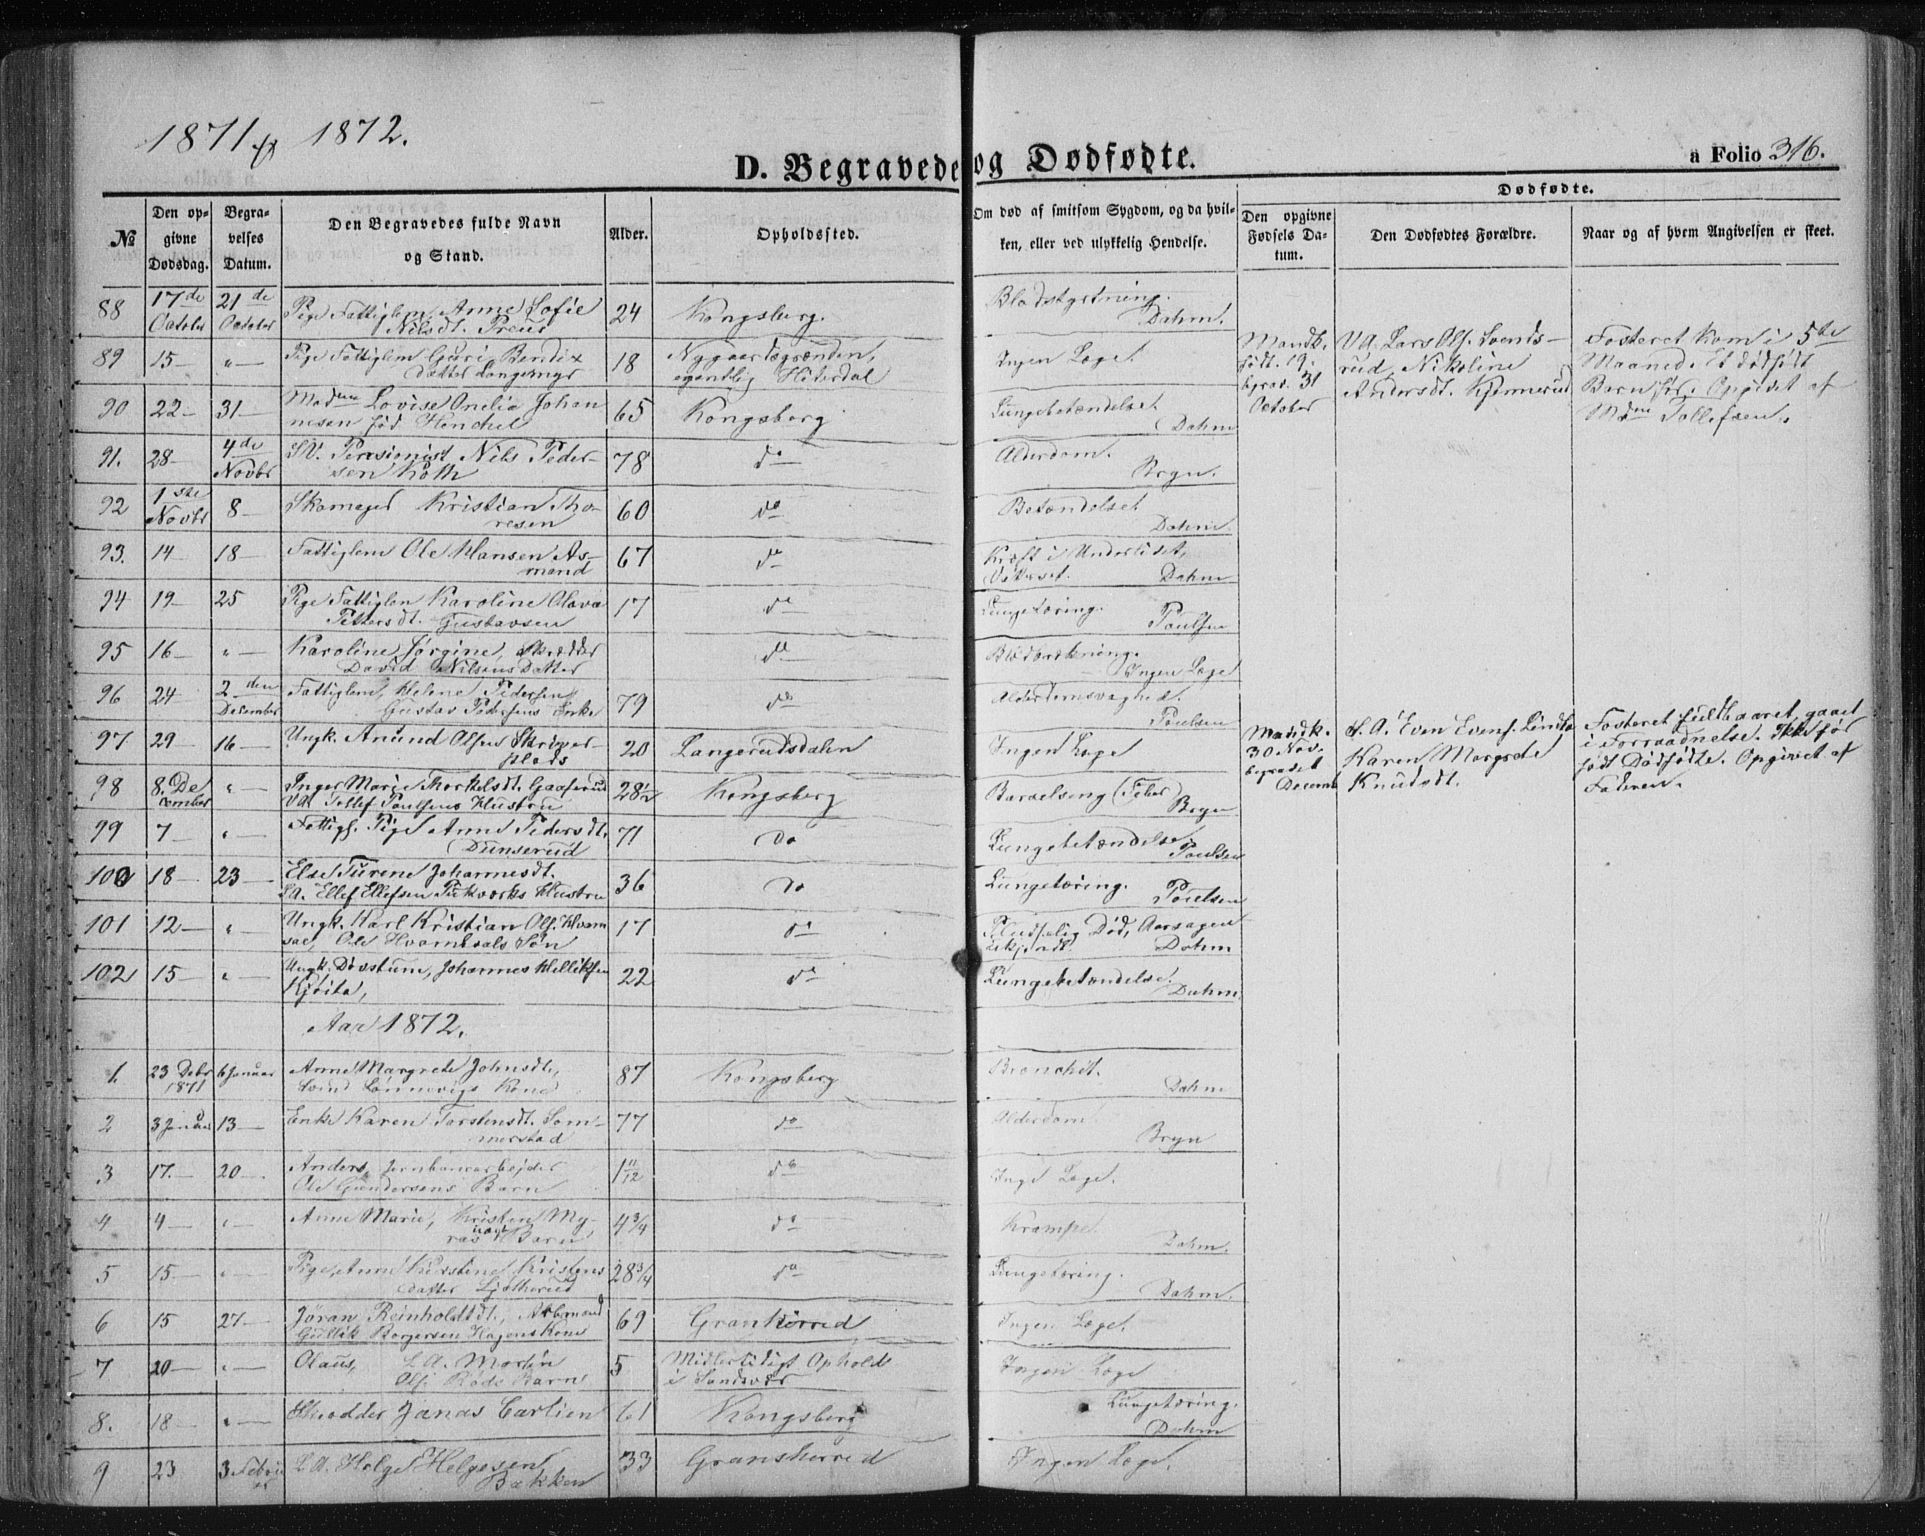 1871 & 1872.
D. Begravede og Dødfødte.
a Folio 316.
№
Den opgivne Dødsdag.
Begravelses Datum.
Den Begravedes fulde Navn og Stand.
Alder.
Opholdssted.
Om død af smitsom Sygdom, og da hvilken, eller ved ulykkelig Hendelse.
Dødfødte.
Den opgivne Fødsels Datum.
Den Dødfødtes Forældre.
Naar og af hvem Angivelsen er skeet.
88 17de October 21de October Pige Fattiglem Anne Sofie Nilsdt. Preus 24 Kongsberg. Blodstyrtning. Dahm.
89 15 " Pige Fattiglem Guri Bendix Datter Langemyr 18 Nygaardsgrænden, egentlig Hiterdal Ingen Læge
90 22 31 Madme Lovise Onelia Johannesen fød Henchel 65 Kongsberg Lungebetændelse. Dahm
91. 28 4de Novbr SV. Pensionist Nils Pedersen Roth 78 do Alderdom. Bryn.
92 1ste Novbr 8 Skomager Kristian Thoresen 60 do Betændelse Dahm
93. 14 18 Fattiglem Ole Hansen Asmand 67 do Kræft i Underlivet, Dahm
94 19 25 Pige Fattiglem Karoline Olava Pettersdt. Gustavsen 17 do Lungetæring. Poulsen
95 16 " Karoline Jørgine, Skrædder David Nilsens Datter do Blodbrækning. Ingen Læge
96 24 2den December Fattiglem, Helene Pedersen, Gustav Pedersens Enke 79 do Alderdomsvaghed. Poulsen
97. 29 16 Ungk. Anund Olsen Skriverplads 20 Langerudsdalen Ingen Læge
98 8. December " Inger Marie Thorkelsdt. VA Tollef Paulsens Hustru 28½ Kongsberg Barselseng (Feber) Bryn
99 7 " Fattigl. Pige Anne Pedersdt. Dunserud 71 do Lungebetændelse Poulsen
100 18 23 Else Turene Johannesdt. SA. Ellef Ellefsen Pukværks Hustru 36 do Lungetæring. Poulsen
101 12 " Ungk. Karl Kristian Ols. Hvamsal, Ole Hvamsals Søn 17 do Pludselig Død, Aarsagen ukjendt. Dahm
102 15 " Ungk. Døvstum, Johannes Helliksen Kjøita, 22 do Lungebetændelse. Dahm.
Mandk. født 19. begrav. 31 October VA. Lars Ols. Svendsrud, Nikoline Andersdt. Kjennerud Fosteret kom i 5te Maaned. Et dødfødt Barn før. Opgivet af Mdme Tollefsen.
Mandk. 30 Nov. begravet Decemb S. A. Even Evens. Karen Margrete Knutsdt. Fosteret fuldbaaret, gaaet i Forraadnelse. Ikke før født Dødfødte. Opgivet af Faderen.
Aar 1872.
1. 23 Debr 1871 6 Januar Anne Margrete Johnsdt., Svend Lønnevigs Kone 87 Kongsberg Bronchit. Dahm
2 3 Januar 13 Enke Karen Torstensdt. Sommerstad 77 do Alderdom Bryn
3 17. 20 Anders, Jernbanearbejder Ole Gundersens Barn 1 11/12 do Inge Læge.
4 4 " Anne Marie, Kristen Myrås Barn 4¾ do Krampe. Dahm.
5 15 " Pige, Anne Kirstine Kristens Datter Ljøterud 28¾ do Lungetæring. Dahm.
6 15 27 Jøran Reinholdtdt., Arbmand Gullik Borgersen Hagens Kone 69 Gransherred Ingen Læge.
7 20 " Olaus, S. A. Martin Ols. Røds Barn 5 Midlertidigt Ophold i Sandsvær Ingen Læge
8. 18 " Skrædder Jonas Carlsen 61 Kongsberg Lungetæring. Dahm
9 23 3 Februar S.A. Helge Helgesen Bakken 33 Gransherred Ingen Læge.